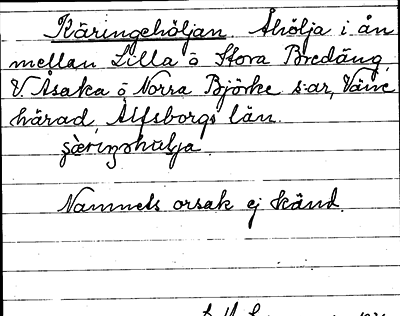 Käringehöljan. Åhölja i ån
mellan Lilla o Stora Bredäng,
V. Åsaka o Norra Björke s:ar, Väne
härad, Älfsborgs län.
Namnets orsak ej känd.